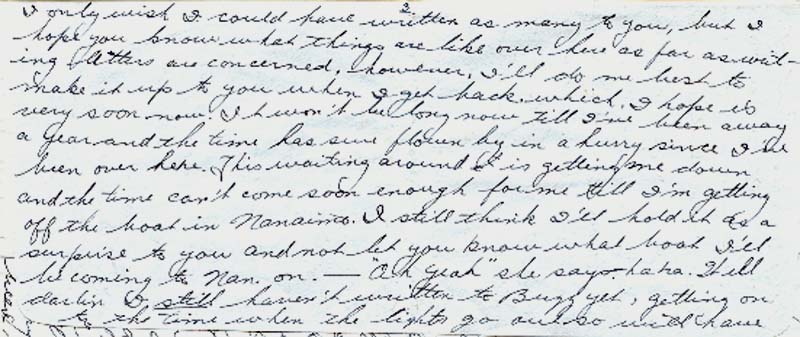 2
I only wish I could have written as many to you, but I
hope you know what things are like over here as far as writ-
ing letters are concerned. however, I'll do me best to
make it up to you when I get back. which, I hope is
very soon now. It won't be long now till I've been away
a year and the time has sure flown by in a hurry since I've
been over here. This waiting around is getting me down
and the time can't come soon enough for me till I'm getting
off the boat in Nanaimo. I still think I'll hold it as a
surprise to you and not let you know what boat I'll
be coming to Nan. on — "Oh yeah" she says. haha. Well
darlin I still haven't written to Bugg yet, getting on
to the time when the lights go out so will have